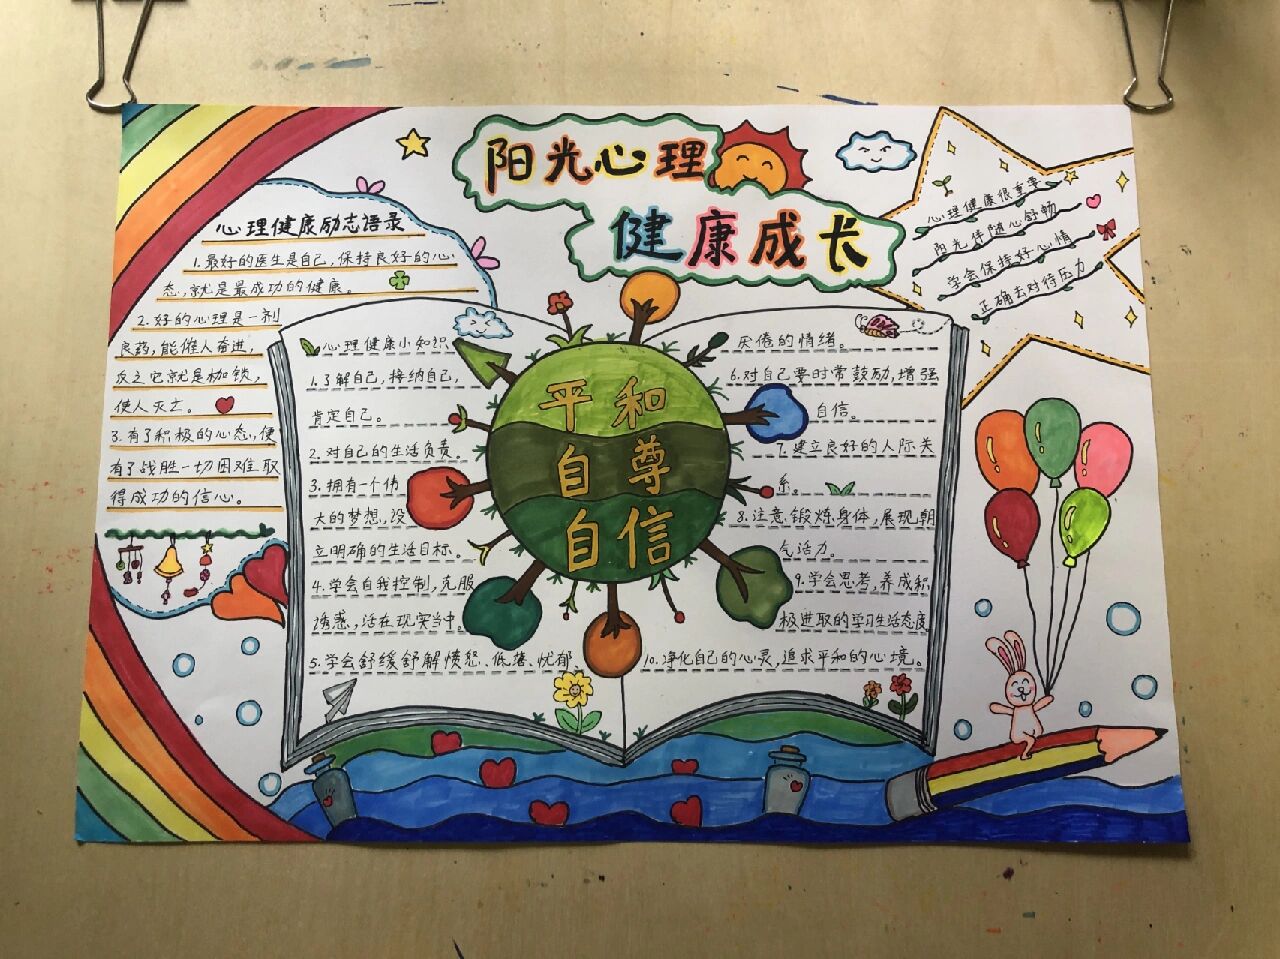 阳光心理
健康成长
心理健康励志语录
1.最好的医生是自己,保持良好的心
态,就是最成功的健康。
2.好的心理是一剂
良药,能催人奋进,
反之它就是枷锁,
使人灭亡。
3.有了积极的心态,便
有了战胜一切困难取
得成功的信心。
心理健康很重要
阳光伴随心舒畅
学会保持好心情
正确去对待压力
平和
自尊
自信
心理健康小知识
1.了解自己,接纳自己,
肯定自己。
2.对自己的生活负责。
3.拥有一个伟
大的梦想,设
立明确的生活目标。
4.学会自我控制,克服
诱惑,活在现实当中。
5.学会舒缓舒解愤怒、低落、忧郁、
厌倦的情绪。
6.对自己要时常鼓励,增强
自信。
7.建立良好的人际关
系。
8.注意锻炼身体,展现朝
气活力。
9.学会思考,养成积
极进取的学习生活态度
10.净化自己的心灵,追求平和的心境。